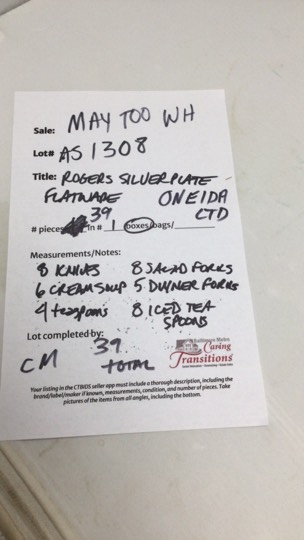 Sale: MAY TOO WH
Lot# AS 1308
Title: ROGERS SILVERPLATE
FLATWARE ONEIDA
LTD
# pieces 39 in # 1 boxes/bags/
Measurements/Notes:
8 KNIVES 8 SALAD FORKS
6 CREAM SOUP 5 DINNER FORKS
4 teaspoons 8 ICED TEA
SPOONS
Lot completed by: 39
CM TOTAL
Baltimore Metro
Caring
Transitions
Your listing in the CTBIDS seller app must include a thorough description, including the
brand/label/maker if known, measurements, condition, and number of pieces. Take
pictures of the items from all angles, including the bottom.